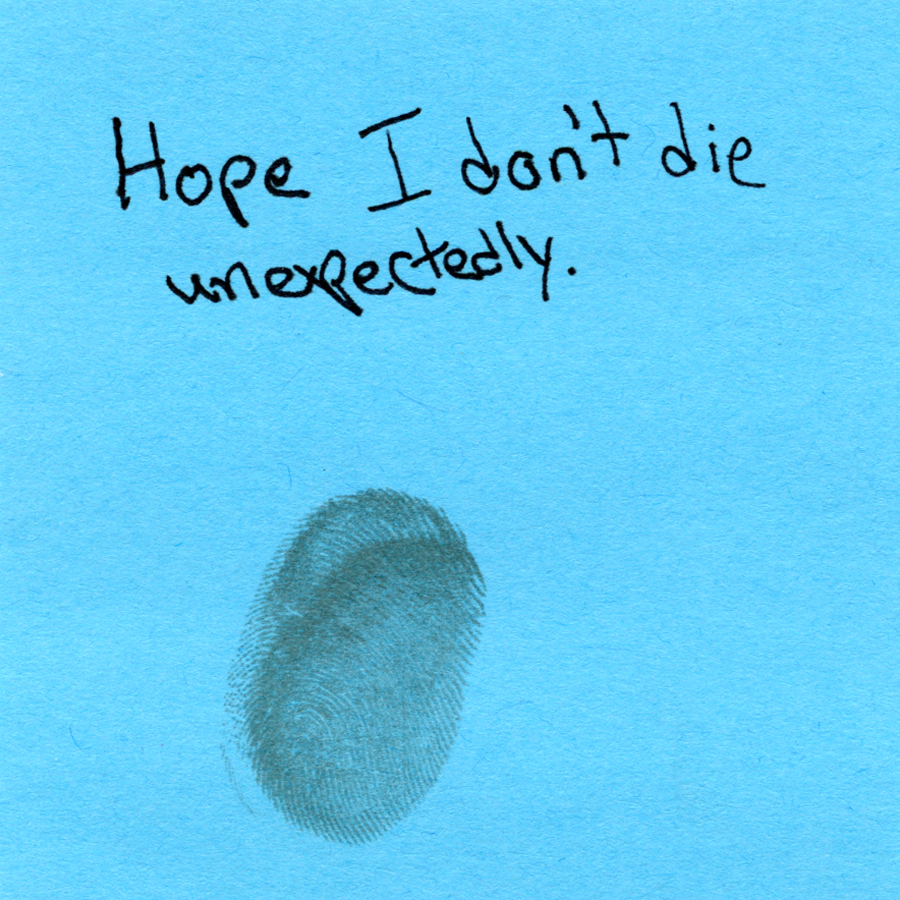 Hope I don't die
unexpectedly.